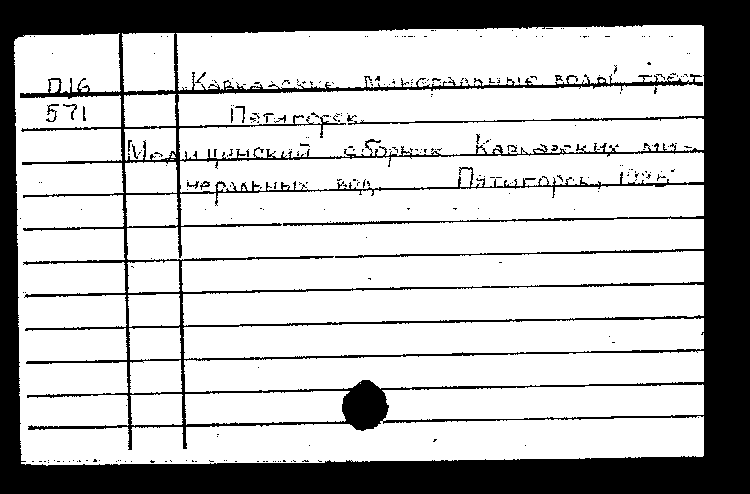 П16 Кавказские Минеральные воды, трест
571 Пятигорск.
Медицинский сборник Кавказских ми-
неральных вод. Пятигорск, 1925